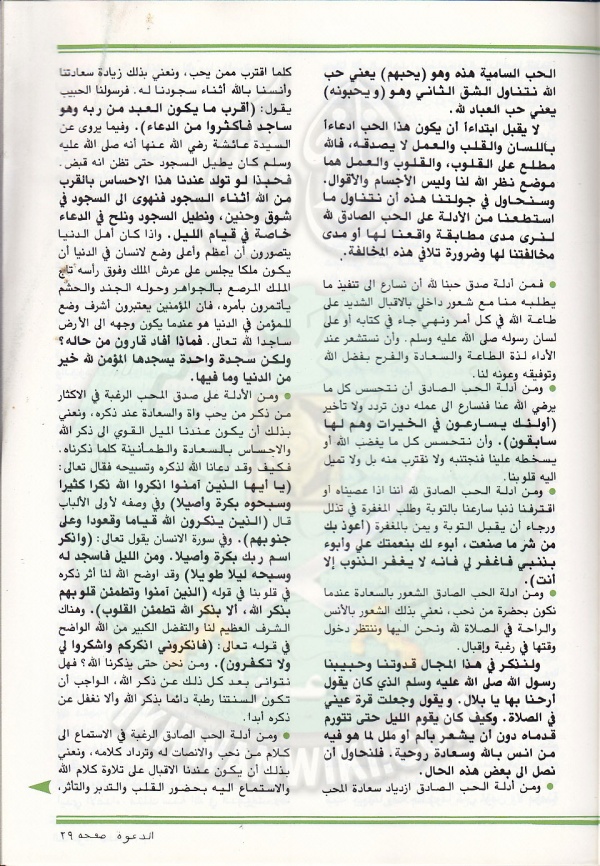 الحب السامية هذه وهو (يحبهم) يعني حب
الله نتناول الشق الثاني وهو (ويحبونه)
يعني حب العباد لله.
لا يقبل ابتداءاً أن يكون هذا الحب ادعاءاً
باللسان والقلب والعمل لا يصدقه، فالله
مطلع على القلوب، والقلوب والعمل هما
موضع نظر الله لنا وليس الأجسام والأقوال.
وسنحاول في جولتنا هذه أن نتناول ما
استطعنا من الأدلة على الحب الصادق لله
لنرى مدى مطابقة واقعنا لها أو مدى
مخالفتنا لها وضرورة تلافي هذه المخالفة.
● فمن أدلة صدق حبنا لله أن نسارع الى تنفيذ ما
يطلبه منا مع شعور داخلي بالاقبال الشديد على
طاعة الله في كل أمر ونهي جاء في كتابه أو على
لسان رسوله صلى الله عليه وسلم. وأن نستشعر عند
الأداء لذة الطاعة والسعادة والفرح بفضل الله
وتوفيقه وعونه لنا.
● ومن أدلة الحب الصادق أن نتحسس كل ما
يرضي الله عنا فنسارع الى عمله دون تردد ولا تأخير
(أولئك يسارعون في الخيرات وهم لها
سابقون). وأن نتحسس كل ما يغضب الله أو
يسخطه علينا فنجتنبه ولا نقترب منه بل ولا تميل
اليه قلوبنا.
● ومن أدلة الحب الصادق لله أننا اذا عصيناه أو
اقترفنا ذنبا سارعنا بالتوبة وطلب المغفرة في تذلل
ورجاء أن يقبل التوبة ويمن بالمغفرة (أعوذ بك
من شر ما صنعت، أبوء لك بنعمتك علي وأبوء
بذنبي فاغفر لي فانه لا يغفر الذنوب إلا
أنت).
● ومن ادلة الحب الصادق الشعور بالسعادة عندما
نكون بحضرة من نحب، نعني بذلك الشعور بالأنس
والراحة في الصلاة لله ونحن اليها وننتظر دخول
وقتها في رغبة وإقبال.
ولنذكر في هذا المجال قدوتنا وحبيبنا
رسول الله صلى الله عليه وسلم الذي كان يقول
أرحنا بها يا بلال. ويقول وجعلت قرة عيني
في الصلاة. وكيف كان يقوم الليل حتى تتورم
قدماه دون أن يشعر بألم أو ملل لما هو فيه
من انس بالله وسعادة روحية. فلنحاول أن
نصل الى بعض هذه الحال.
● ومن أدلة الحب الصادق ازدياد سعادة المحب
كلما اقترب ممن يحب، ونعني بذلك زيادة سعادتنا
وأنسنا بالله أثناء سجودنا له. فرسولنا الحبيب
يقول: (أقرب ما يكون العبد من ربه وهو
ساجد فأكثروا من الدعاء). وفيما يروى عن
السيدة عائشة رضي الله عنها أنه صلى الله عليه
وسلم كان يطيل السجود حتى تظن انه قبض.
فحبذا لو تولد عندنا هذا الاحساس بالقرب
من الله أثناء السجود فنهوى الى السجود في
شوق وحنين، ونطيل السجود ونلح في الدعاء
خاصة في قيام الليل. واذا كان أهل الدنيا
يتصورون أن أعظم وأعلى وضع لانسان في الدنيا أن
يكون ملكا يجلس على عرش الملك وفوق رأسه تاج
الملك المرصع بالجواهر وحوله الجند والحشم
يأتمرون بأمره، فان المؤمنين يعتبرون أشرف وضع
للمؤمن في الدنيا هو عندما يكون وجهه الى الأرض
ساجدا لله تعالى. فماذا أفاد قارون من حاله؟
ولكن سجدة واحدة يسجدها المؤمن لله خير
من الدنيا وما فيها.
● ومن الأدلة على صدق المحب الرغبة في الاكثار
من ذكر من يحب واة والسعادة عند ذكره، ونعني
بذلك أن يكون عندنا الميل القوي الى ذكر الله
والاحساس بالسعادة والطمأنينة كلما ذكرناه.
فكيف وقد دعانا الله لذكره وتسبيحه فقال تعالى:
(يا أيها الذين آمنوا اذكروا الله ذكرا كثيرا
وسبحوه بكرة وأصيلا) وفي وصفه لأولى الألباب
قال (الذين يذكرون الله قياما وقعودا وعلى
جنوبهم). وفي سورة الانسان يقول تعالى: (واذكر
اسم ربك بكرة وأصيلا. ومن الليل فاسجد له
وسبحه ليلا طويلا) وقد اوضح الله لنا أثر ذكره
في قلوبنا في قوله (الذين آمنوا وتطمئن قلوبهم
بذكر الله، ألا بذكر الله تطمئن القلوب). وهناك
الشرف العظيم لنا والتفضل الكبير من الله الواضح
في قوله تعالى: (فاذكروني اذكركم واشكروا لي
ولا تكفرون). ومن نحن حتى يذكرنا الله؟ فهل
نتوانى بعد كل ذلك عن ذكر الله، الواجب أن
تكون ألسنتنا رطبة دائما بذكر الله وألا نغفل عن
ذكره أبدا.
● ومن أدلة الحب الصادق الرغبة في الاستماع الى
كلام من نحب والانصات له وترداد كلامه، ونعني
بذلك أن يكون عندنا الاقبال على تلاوة كلام الله
والاستماع اليه بحضور القلب والتدبر والتأثر،
الدعوة صفحة ٢٩